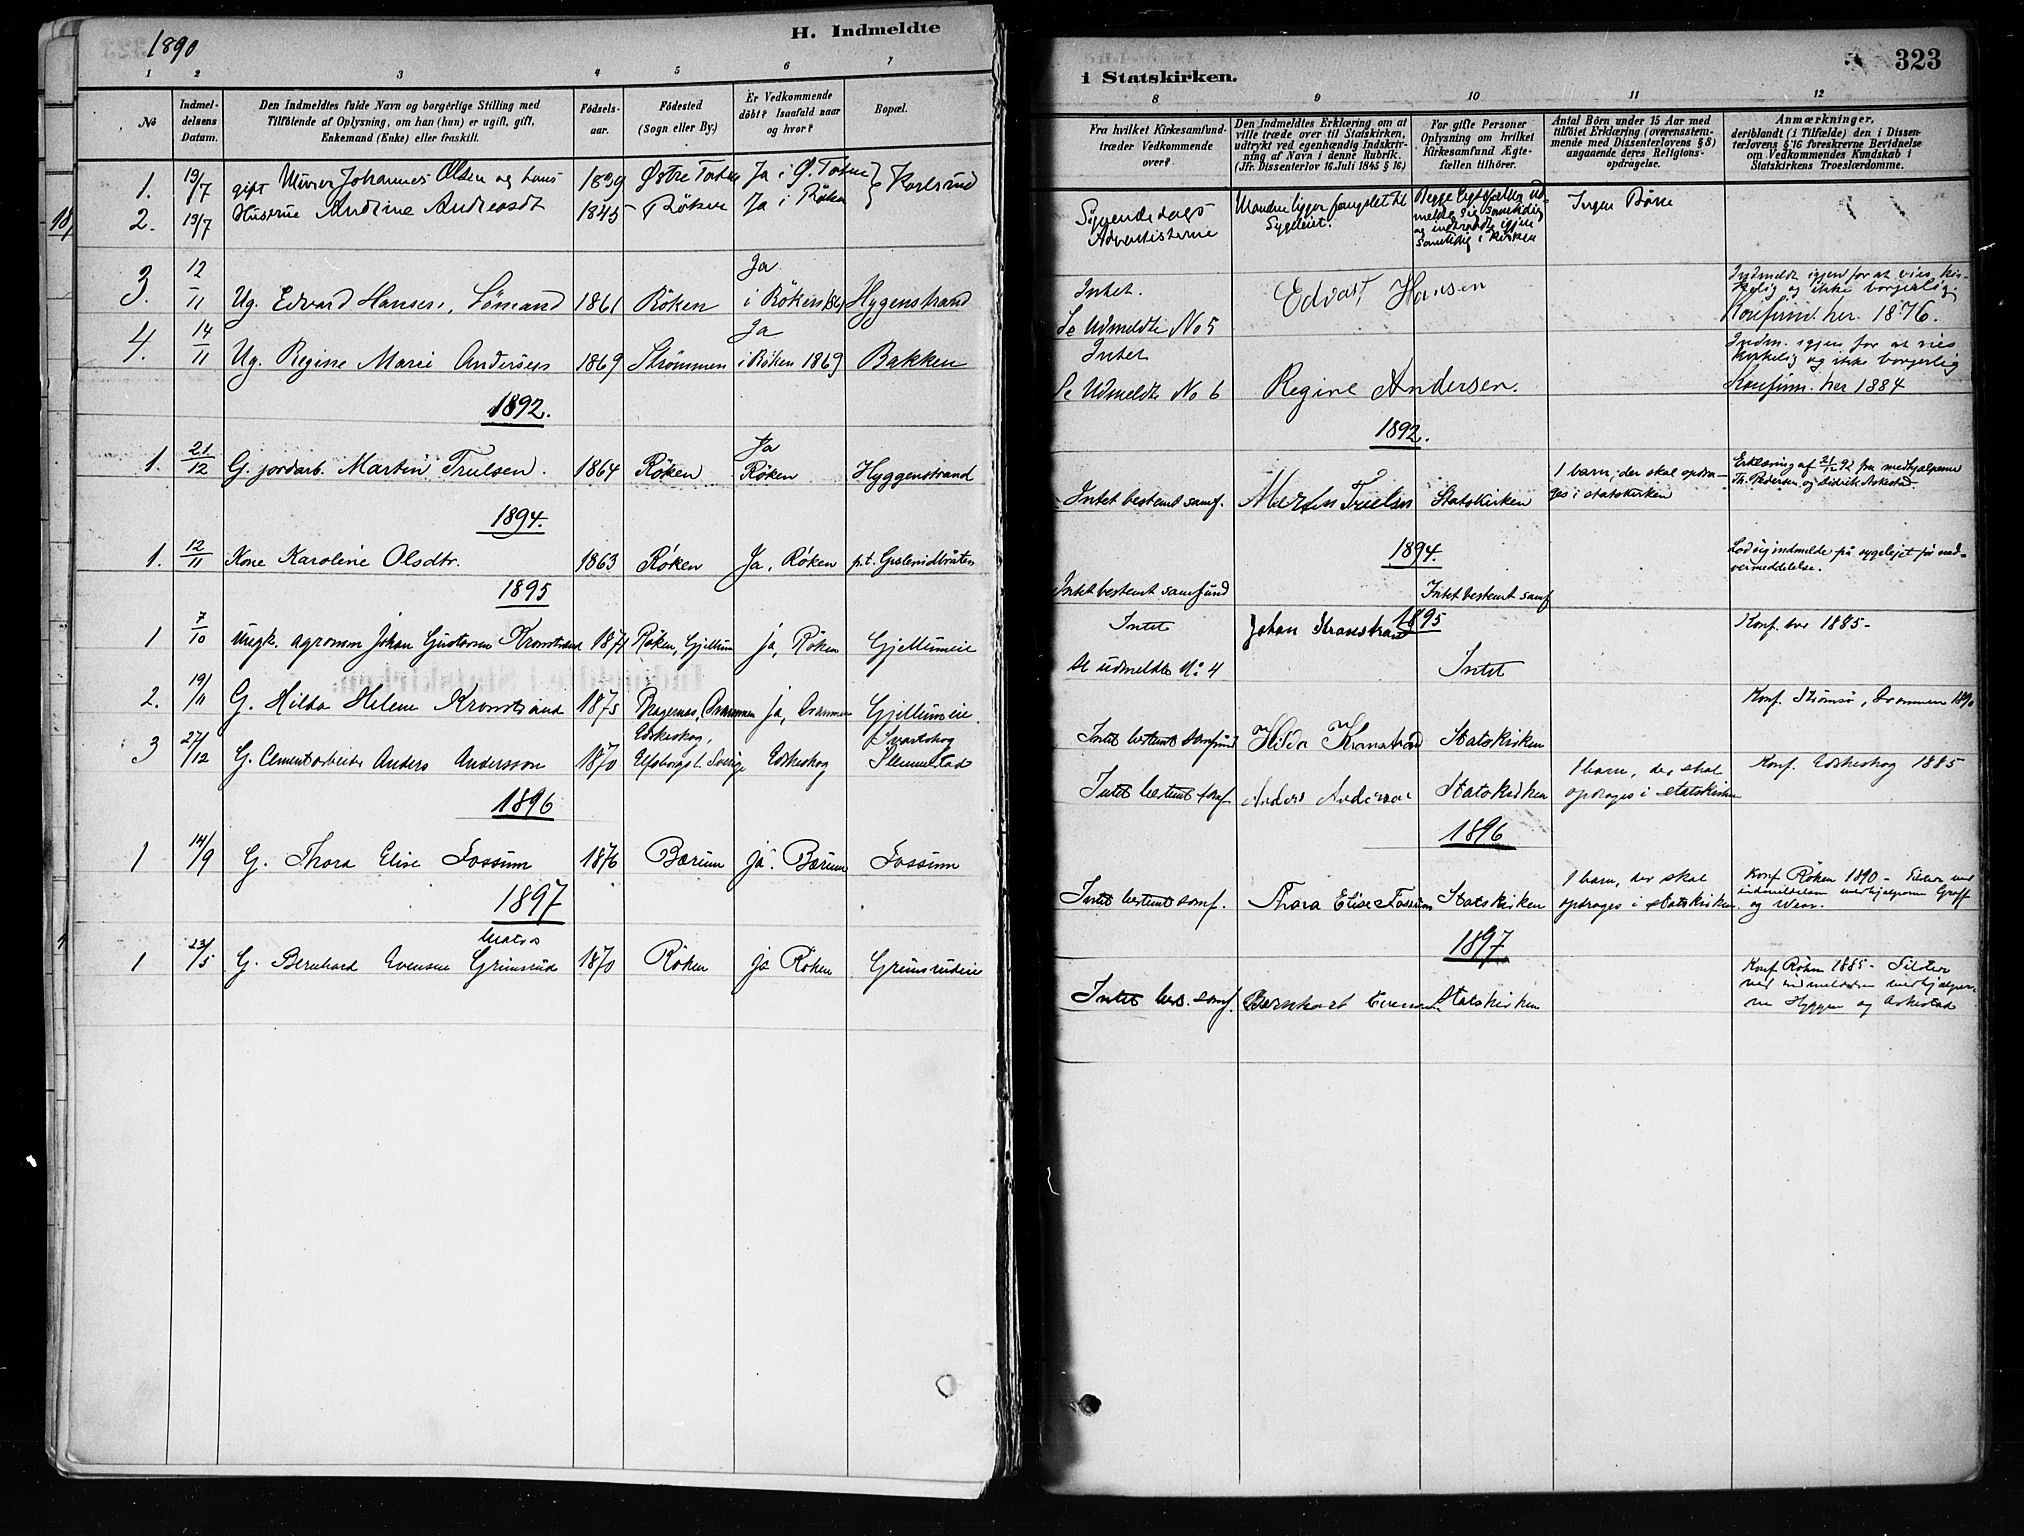 1890
H. Indmeldte
1 2 3 4 5 6 7
No
Indmeldelsens Datum.
Den Indmeldtes fulde Navn og borgerlige Stilling med
Tilföiende af Oplysning, om han (hun) er ugift, gift,
Enkemand (Enke) eller fraskilt.
Födselsaar.
Födested
(Sogn eller By.)
Er Vedkommende
döbt? Isaafald naar
og hvor?
Bopæl.
1. 19/7 gift Murer Johannes Olsen og hans 1839 Østre Toten Ja i Ø. Toten } Karlsrud
2. 19/7 Hustrue Andrine Andreasdt 1845 Röken Ja i Röken
3. 12/11 Ug. Edvard Hansen, Sömand 1861 Röken Ja i Röken (86) Hygenstrand
4. 14/11 Ug. Regine Marie Andersen 1869 Strømmen Ja i Röken 1869 Bakken
1892.
1. 21/12 G. jordarb. Martin Trulsen. 1864 Röken Ja Röken Hyggenstrand
1894.
1. 12/11 Kone Karoline Olsdtr. 1863 Röken Ja, Röken p.t.
1895
1 7/10 Ungk. agronom Johan Gustavsen Kronstrand 1871 Röken, Gjellum ja, Röken Gjellumeie
2. 19/11 G. Hilda Helene Kronstrand 1875 Bragernæs, Drammen ja, Drammen Gjellumeie.
3 27/12 G. Cementarbeider Anders Andersson 1870 Eskeskog, Elfsborgs l. Sverige Eskeskog Svartskog Slemmestad
1896
1 14/9 G. Thora Elise Fossum 1876 Bærum ja. Bærum Fossum
1897
1 23/5 G. Bernhard Evensen Grimsrud 1870 Röken ja Röken Grimsrudeie
i Statskirken.
323
8 9 10 11 12
Fra hvilket Kirkesamfund
træder Vedkommende
over?
Den Indmeldtes Erklæring om at
ville træde over til Statskirken,
udtrykt ved egenhændig Indskrivning af Navn i denne Rubrik.
(Jfr. Dissenterlov 16. Juli 1845 § 16)
For gifte Personer
Oplysning om hvilket
Kirkesamfund Ægtefællen tilhörer.
Antal Börn under 15 Aar med
tilföiet Erklæring (overensstemmende med Dissenterlovens § 8)
angaaende deres Religionsopdragelse.
Anmærkninger,
deriblandt (i Tilfælde) den i Dissenterlovens § 16 foreskrevne Bevidnelse
om Vedkommendes Kundskab i
Statskirkens Troeslærdomme.
Syvendedags Adventisterne Manden ligger fængslet til Sygeleiet. Begge Ægtefæller udmeldte sig samtidig og indtraadte igjen samtidig i Kirken Ingen Børn
Intet. Edvart Hansen Indmeldt igjen for at vies kirkelig og ikke borgerlig.
Se Udmeldte No 5 Konfirm. her 1876.
Intet Indm. igjen for at vies kirkelig og ikke borgerlig
Se Udmeldte No 6 Regine Andersen. Konfirm. her 1884
1892.
Intet bestemt samf. Martin Trulsen Statskirken 1 barn, der skal opdrages i statskirken Erklæring af 21/12 92 fra medhjælperne Th. Pedersen og Didrik Askestad
1894.
Intet bestemt samfund Intet bestemt samf Lod sig indmelde på sygelejet før nadvermeddelelse.
1895
Intet Johan Kronstrand Konf. her 1885-
Se udmeldte No. 4 Intet
Intet bestemt samfund Hilda Kronstrand Statskirken Konf. Strømsø, Drammen 1890
Intet bestemt samf. Anders Anderson Statskirken 1 barn, der skal opdrages i statskirken Konf. Eskeskog 1885
1896
Intet bestemt samf. Thora Elise Fossum Statskirken 1 barn, der skal opdrages i statskirken. Konf Röken 1890 - Tilstede ved indmeldelsen medhjælperne Graff og
1897
Intet bes. samf. Bernhart Evensen Statskirken Konf. Röken 1885- Tilstede ved indmeldelsen medhjælperne Hyggen og Askestad